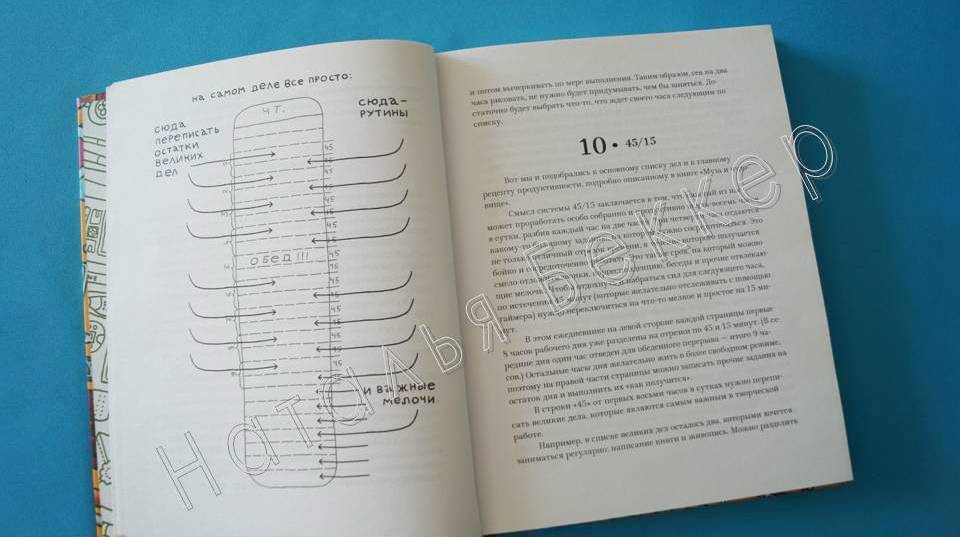 на самом деле все просто:
чт.
сюда переписать остатки великих дел
сюда - рутины
45
15
обед!!!
и важные мелочи
и потом вычеркивать по мере выполнения. Таким образом, сев на два
часа рисовать, не нужно будет придумывать, чем бы заняться. До-
статочно будет выбрать что-то, что ждет своего часа следующим по
списку.
10 • 45/15
Вот мы и подобрались к основному списку дел и к главному
рецепту продуктивности, подробно описанному в книге «Муза и
вище».
Смысл системы 45/15 заключается в том, что каждый из нас
может проработать особо собранно и восемь часов
в сутки, разбив каждый час на две части. Три четверти отдаются
какому-то
не только
бойно и сосредоточенно Это такой срок, на который можно
смело отложить беседы и прочие отвлекаю-
щие мелочи. Чтобы отдохнуть и набраться сил для следующего часа,
по истечении 45 минут (которые желательно отслеживать с помощью
таймера) нужно переключиться на что-то мелкое и простое на 15 ми-
нут.
В этом ежедневнике на левой стороне каждой страницы первые
8 часов рабочего дня уже разделены на отрезки по 45 и 15 минут. (В се-
редине дня один час отведен для обеденного перерыва — итого 9 ча-
сов.) Остальные часы дня желательно жить в более свободном режиме,
поэтому на правой части страницы можно записать прочие задания на
остаток дня и выполнить их «как получится».
В строки «45» от первых восьми часов в сутках нужно перепи-
сать великие дела, которые являются самым важным в творческой
работе.
Например, в списке великих дел осталось два, которыми хочется
заниматься регулярно: написание книги и живопись. Можно разделить
Наталья Беккер